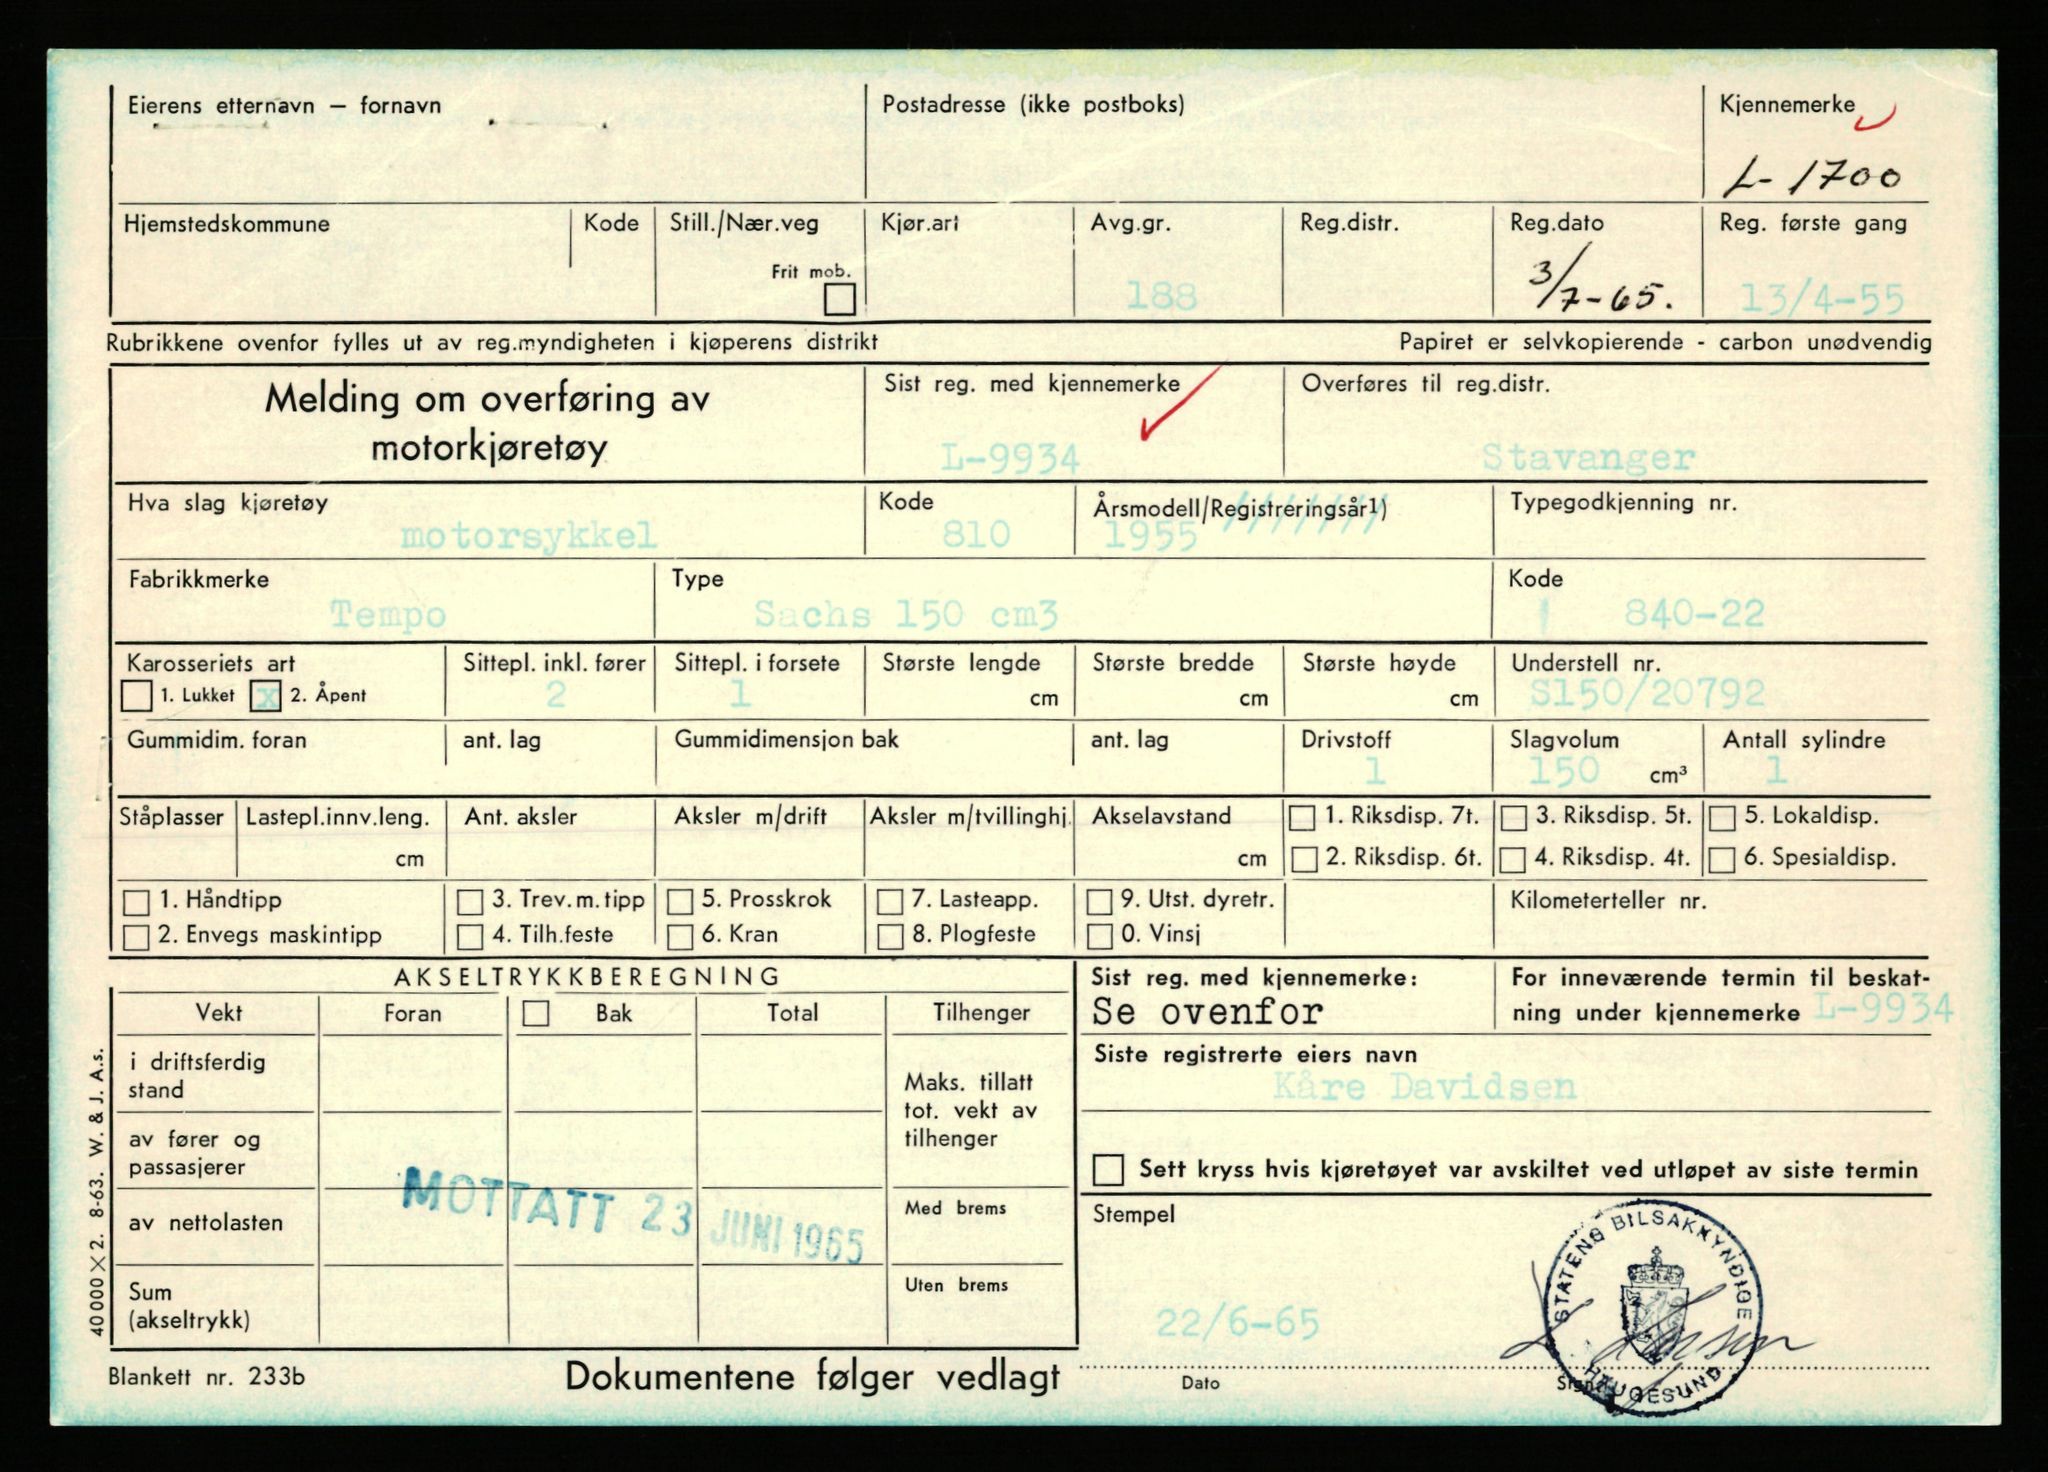 Eierens etternavn — fornavn
Postadresse (ikke postboks)
Kjennemerke
L- 1700
Hjemstedskommune
Kode
Still./Nær.veg
Frit mob.
Kjør.art
Avg.gr.
188
Reg.distr.
Reg.dato
3/7-65.
Reg. første gang
13/4-55
Rubrikkene ovenfor fylles ut av reg.myndigheten i kjøperens distrikt
Papiret er selvkopierende - carbon unødvendig
Melding om overføring av
motorkjøretøy
Sist reg. med kjennemerke
L-9934
Overføres til reg.distr.
Stavanger
Hva slag kjøretøy
motorsykkel
Kode
810
Årsmodell/Registreringsår1)
1955 ///////
Typegodkjenning nr.
Fabrikkmerke
Tempo
Type
Sachs 150 cm3
Kode
840-22
Karosseriets art
1. Lukket x 2. Åpent
Sittepl. inkl. fører
2
Sittepl. i forsete
1
Største lengde
cm
Største bredde
cm
Største høyde
cm
Understell nr.
S150/20792
Gummidim. foran
ant. lag
Gummidimensjon bak
ant. lag
Drivstoff
1
Slagvolum
150 cm³
Antall sylindre
1
Ståplasser
Lastepl.innv.leng.
cm
Ant. aksler
Aksler m/drift
Aksler m/tvillinghj.
Akselavstand
cm
1. Riksdisp. 7t.
2. Riksdisp. 6t.
3. Riksdisp. 5t.
4. Riksdisp. 4t.
5. Lokaldisp.
6. Spesialdisp.
1. Håndtipp
2. Envegs maskintipp
3. Trev. m. tipp
4. Tilh.feste
5. Prosskrok
6. Kran
7. Lasteapp.
8. Plogfeste
9. Utst. dyretr.
0. Vinsj
Kilometerteller nr.
AKSELTRYKKBEREGNING
Vekt
Foran
Bak
Total
Tilhenger
i driftsferdig
stand
av fører og
passasjerer
av nettolasten
Sum
(akseltrykk)
Maks. tillatt
tot. vekt av
tilhenger
Med brems
Uten brems
MOTTATT 23 JUNI 1965
Sist reg. med kjennemerke:
Se ovenfor
For inneværende termin til beskat-
ning under kjennemerke L-9934
Siste registrerte eiers navn
Kåre Davidsen
Sett kryss hvis kjøretøyet var avskiltet ved utløpet av siste termin
Stempel
STATENS BILSAKKYNDIGE
HAUGESUND
22/6-65
Dato
40 000 X 2. 8-63. W. & J. A.s.
Blankett nr. 233b
Dokumentene følger vedlagt